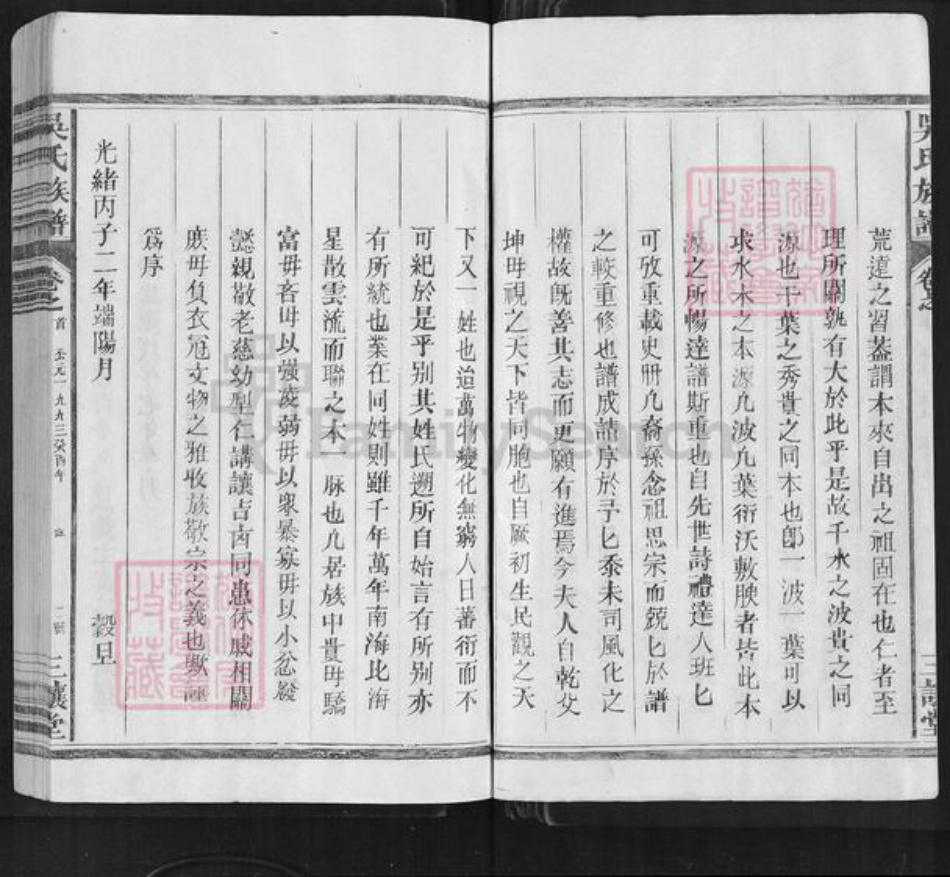 吳氏族譜
卷之
三讓堂
荒遠之習葢謂木來自出之祖固在也仁者至
理所關孰有大於此乎是故千水之波貴之同
源也千葉之秀貴之同本也卽一波一葉可以
求水木之本源凡波凡葉衍沃敷腴者皆此本
源之所暢達譜斯重也自先世詩禮達人班匕
可攷重載史冊凡裔孫念祖思宗而兢匕於譜
之較重修也譜成請序於予匕忝未司風化之
權故旣善其志而更願有進焉今夫人自乾父
坤毋視之天下皆同胞也自厥初生民觀之天
下又一姓也迨萬物變化無窮人日蕃衍而不
可紀於是乎别其姓氏遡所自始言有所别亦
有所統也業在同姓則雖千年萬年南海比海
星散雲流而聯之本一脉也凡居族中貴毋驕
富毋吝毋以强凌弱毋以衆暴寡毋以小忿縱
懿親敬老慈幼型仁講讓吉凶同患休戚相關
庻毋負衣冠文物之雅收族敬宗之義也歟
爲序
光緒丙子二年端陽月 穀旦
吳氏族譜
卷之
首
公元一九九三癸酉年
三讓堂
FamilySearch